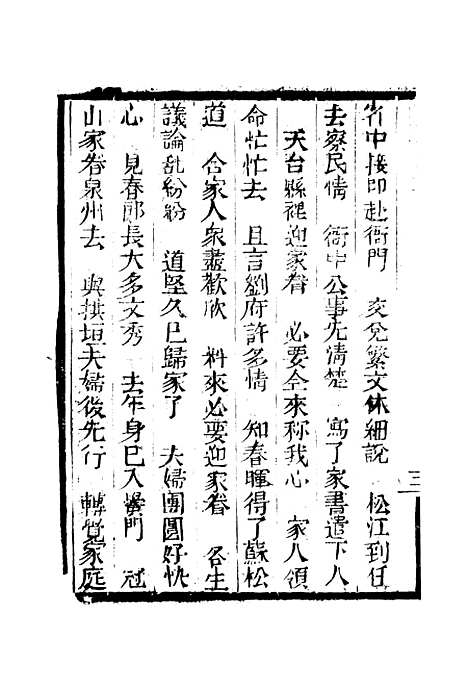 省中接印赴衙門　交兌繁文休細說　松江到任
去察民情　衙中公事先清楚　寫了家書遣下人
天台縣裡迎家眷　必要仝來称我心　家人領
命忙忙去　且言劉府許多情　知春暉得了蘇松
道　合家人衆盡歡欣　料來必要迎家眷　各生
議論乱紛紛　道堅久已歸家了　夫婦團圓好快
心　見春郎長大多文秀　去年身已入黌門　冠
山家眷泉州去　與拱垣夫婦後先行　轉覺家庭
三